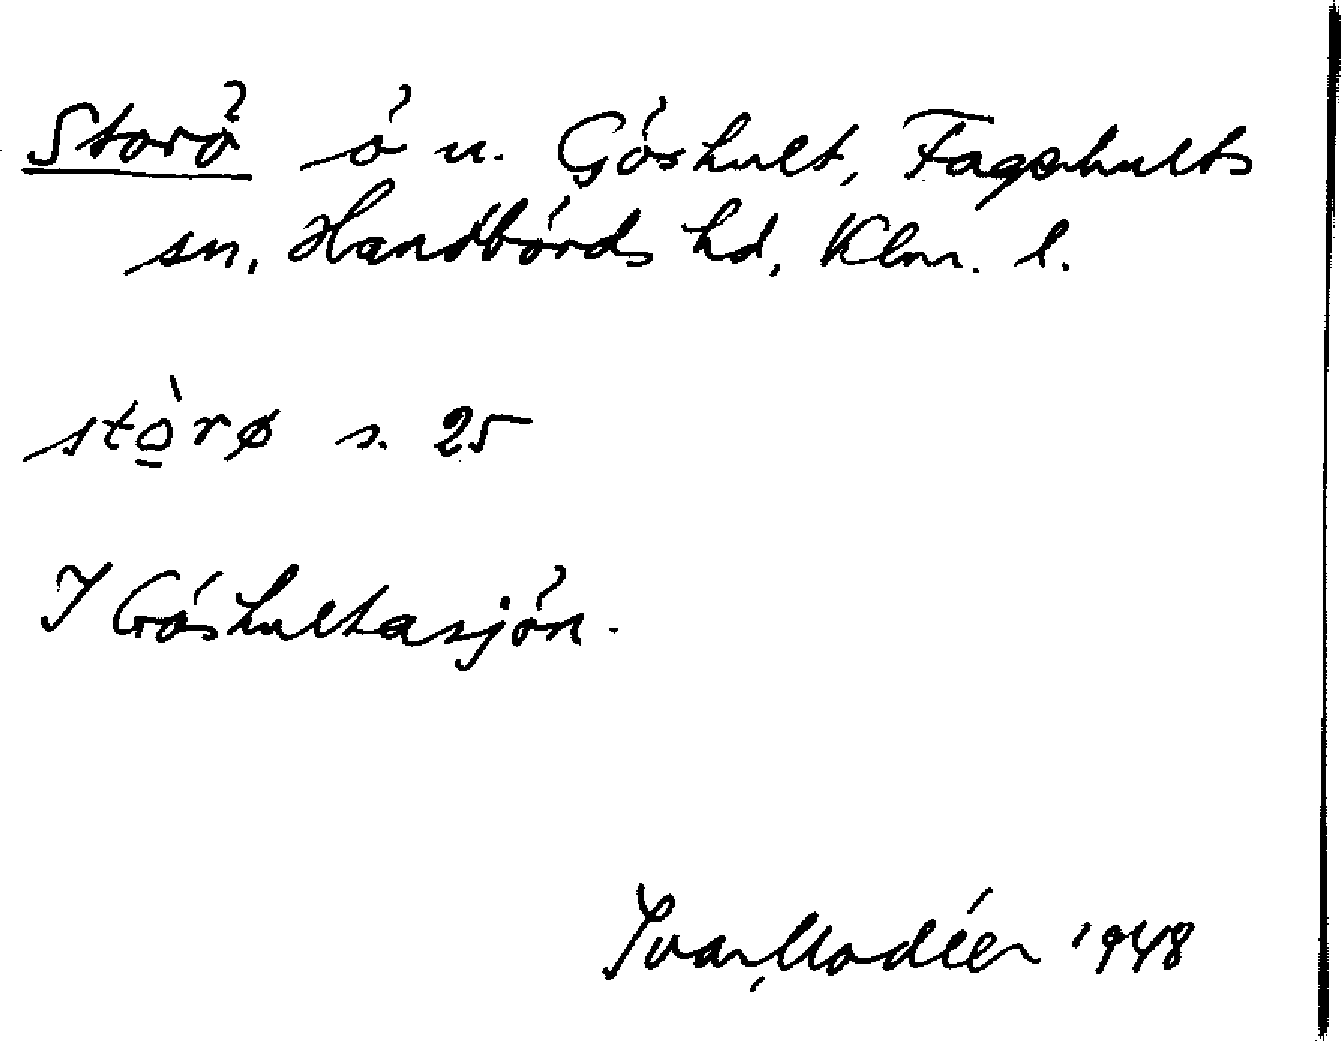 Storö ö u. Gåshult, Fagerhults
sn, Handbörds hd, Klmr. l.
stò̱rø s. 25
I Gåshultasjön.
Ivar Modéer 1948